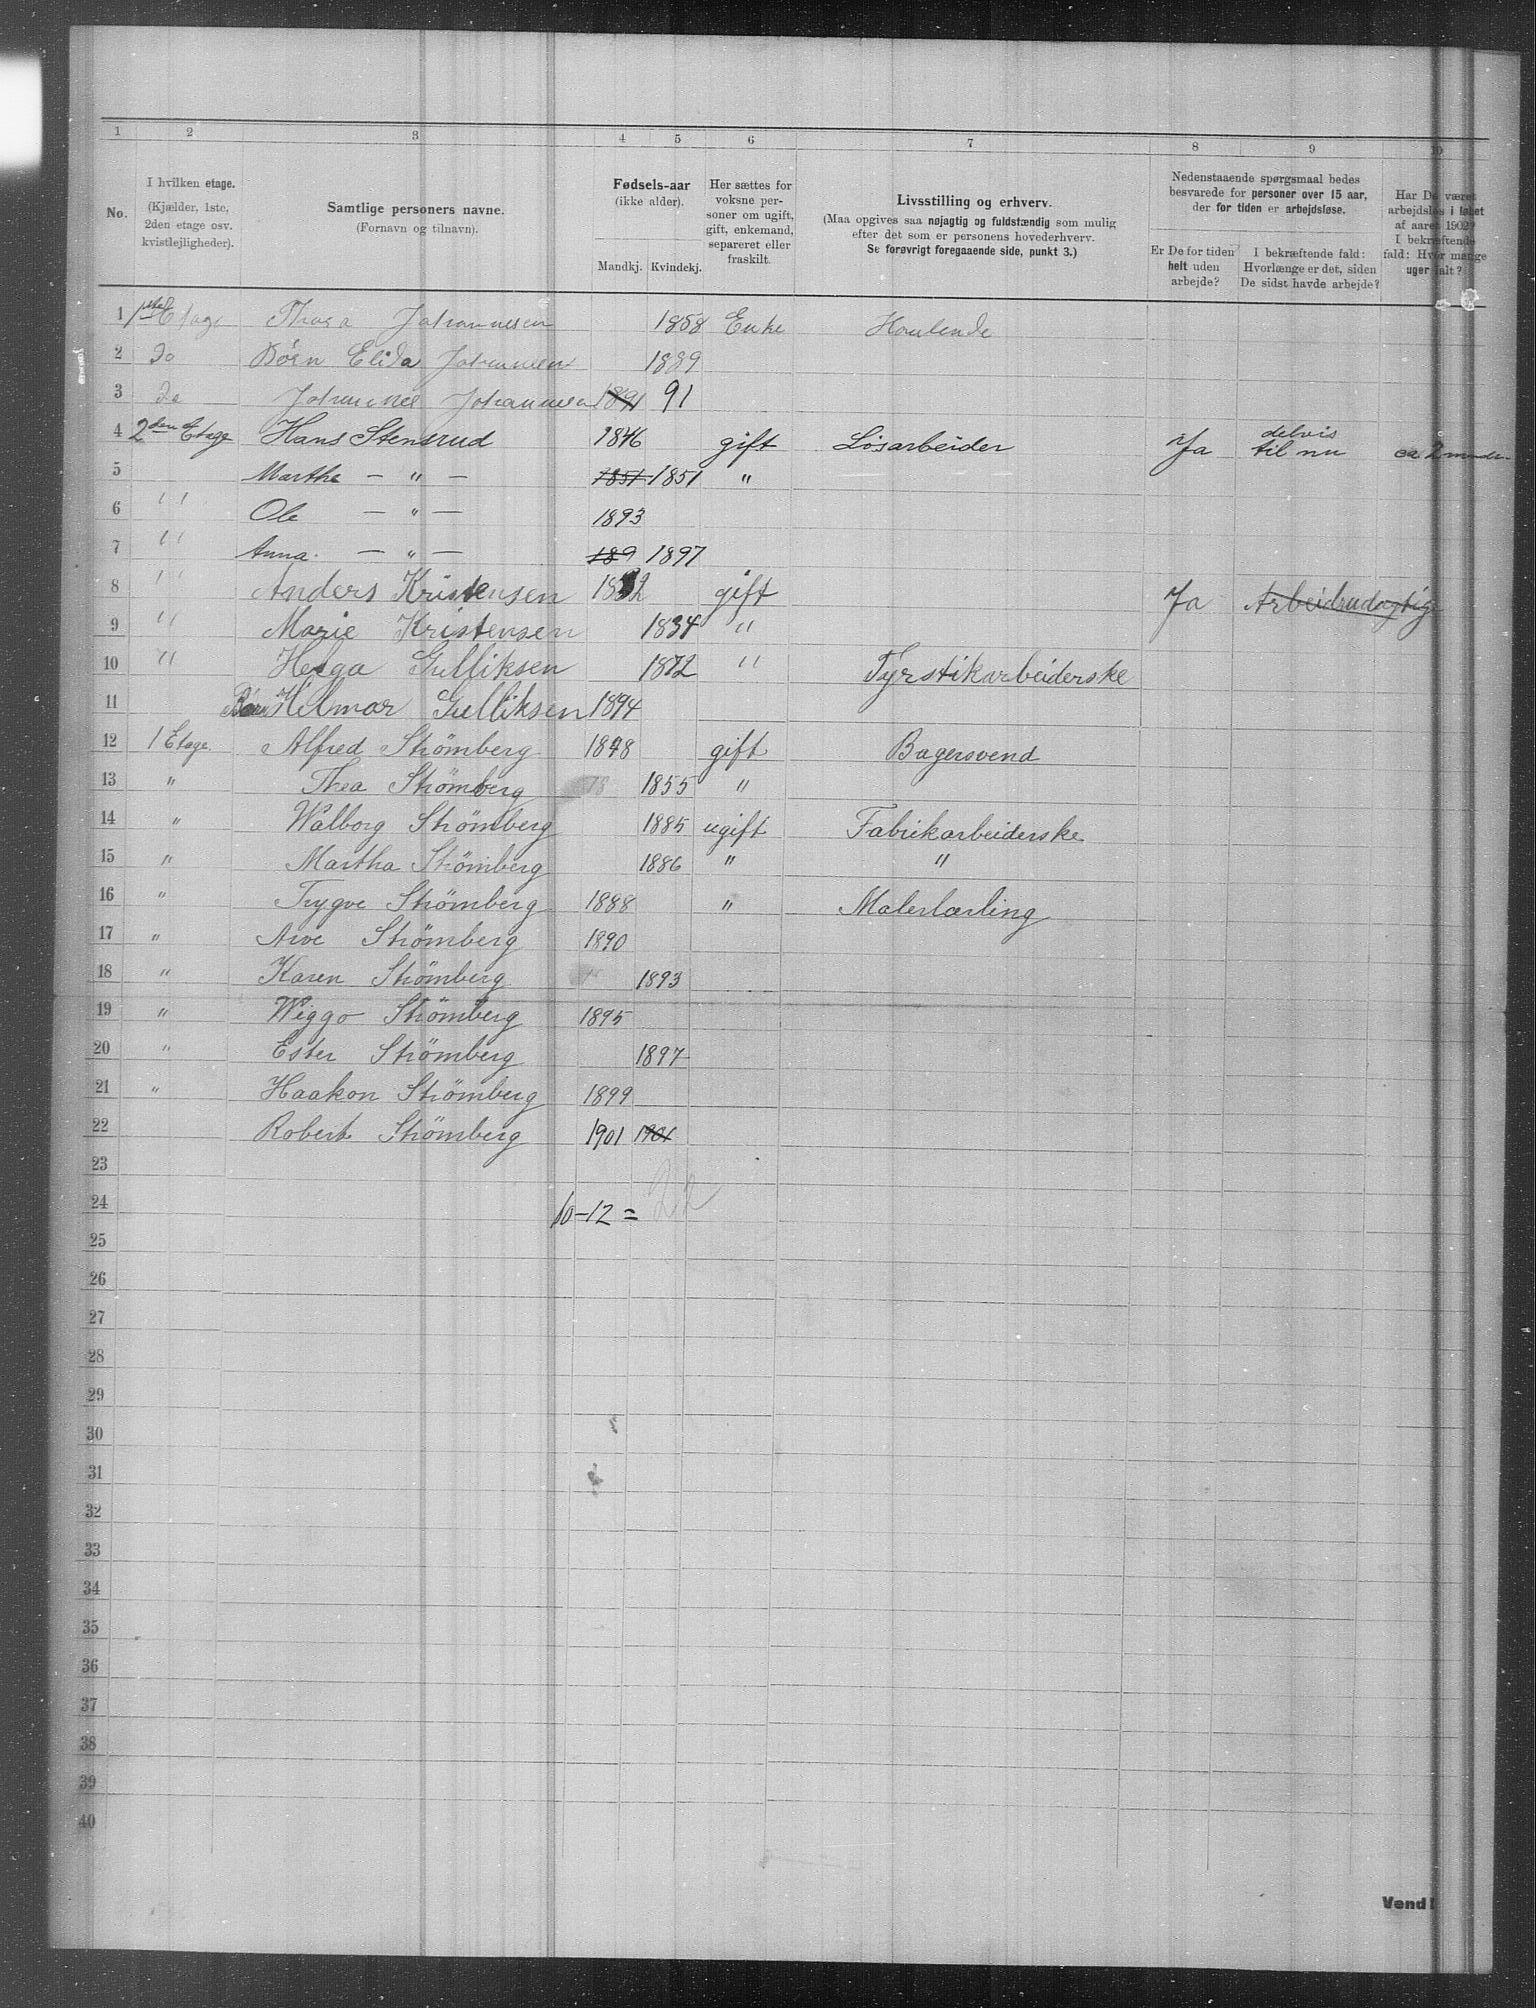 1 2 3 4 5 6 7 8 9 10
No.
I hvilken etage.
(Kjælder, 1ste,
2den etage osv.
kvistlejligheder).
Samtlige personers navne.
(Fornavn og tilnavn).
Fødsels-aar
(ikke alder).
Mandkj. Kvindekj.
Her sættes for
voksne per-
soner om ugift,
gift, enkemand,
separeret eller
fraskilt.
Livsstilling og erhverv.
(Maa opgives saa nøjagtig og fuldstændig som mulig
efter det som er personens hovederhverv.
Se forøvrigt foregaaende side, punkt 3.)
Nedenstaaende spørgsmaal bedes
besvarede for personer over 15 aar,
der for tiden er arbejdsløse.
Er De for tiden
helt uden
arbejde?
I bekræftende fald:
Hvorlænge er det, siden
De sidst havde arbejde?
Har De været
arbejdsløs i løbet
af aaret 1902?
I bekræftende
fald: Hvor mange
uger ialt?
1 1ste Etage Thora Johannesen 1858 Enke
2 Do Børn Elida Johannesen 1889
3 Do Johannes Johannesen 1891 91
4 2den Etage Hans Stensrud 1846 gift Løsarbeider Ja delvis til nu ca 2
5 Marthe — " — 1851 1851 "
6 " Ole — " — 1893
7 " Anna — " — 189 1897
8 " Anders Kristensen 1832 gift Ja
9 " Marie Kristensen 1834 "
10 " Helga Gulliksen 1872 " Fyrstikarbeiderske
11 Børn Hilmar Gulliksen 1894
12 1 Etage Alfred Strömberg 1848 gift Bagersvend
13 " Thea Strömberg 1855 "
14 " Walborg Strömberg 1885 ugift Fabrikarbeiderske
15 " Martha Strömberg 1886 " "
16 " Trygve Strömberg 1888 " Malerlærling
17 " Arve Strömberg 1890
18 " Karen Strömberg 1893
19 " Wiggo Strömberg 1895
20 " Ester Strömberg 1897
21 " Haakon Strömberg 1899
22 Robert Strömberg 1901 1901
23
24 10-12 = 22
25
26
27
28
29
30
31
32
33
34
35
36
37
38
39
40
Vend!